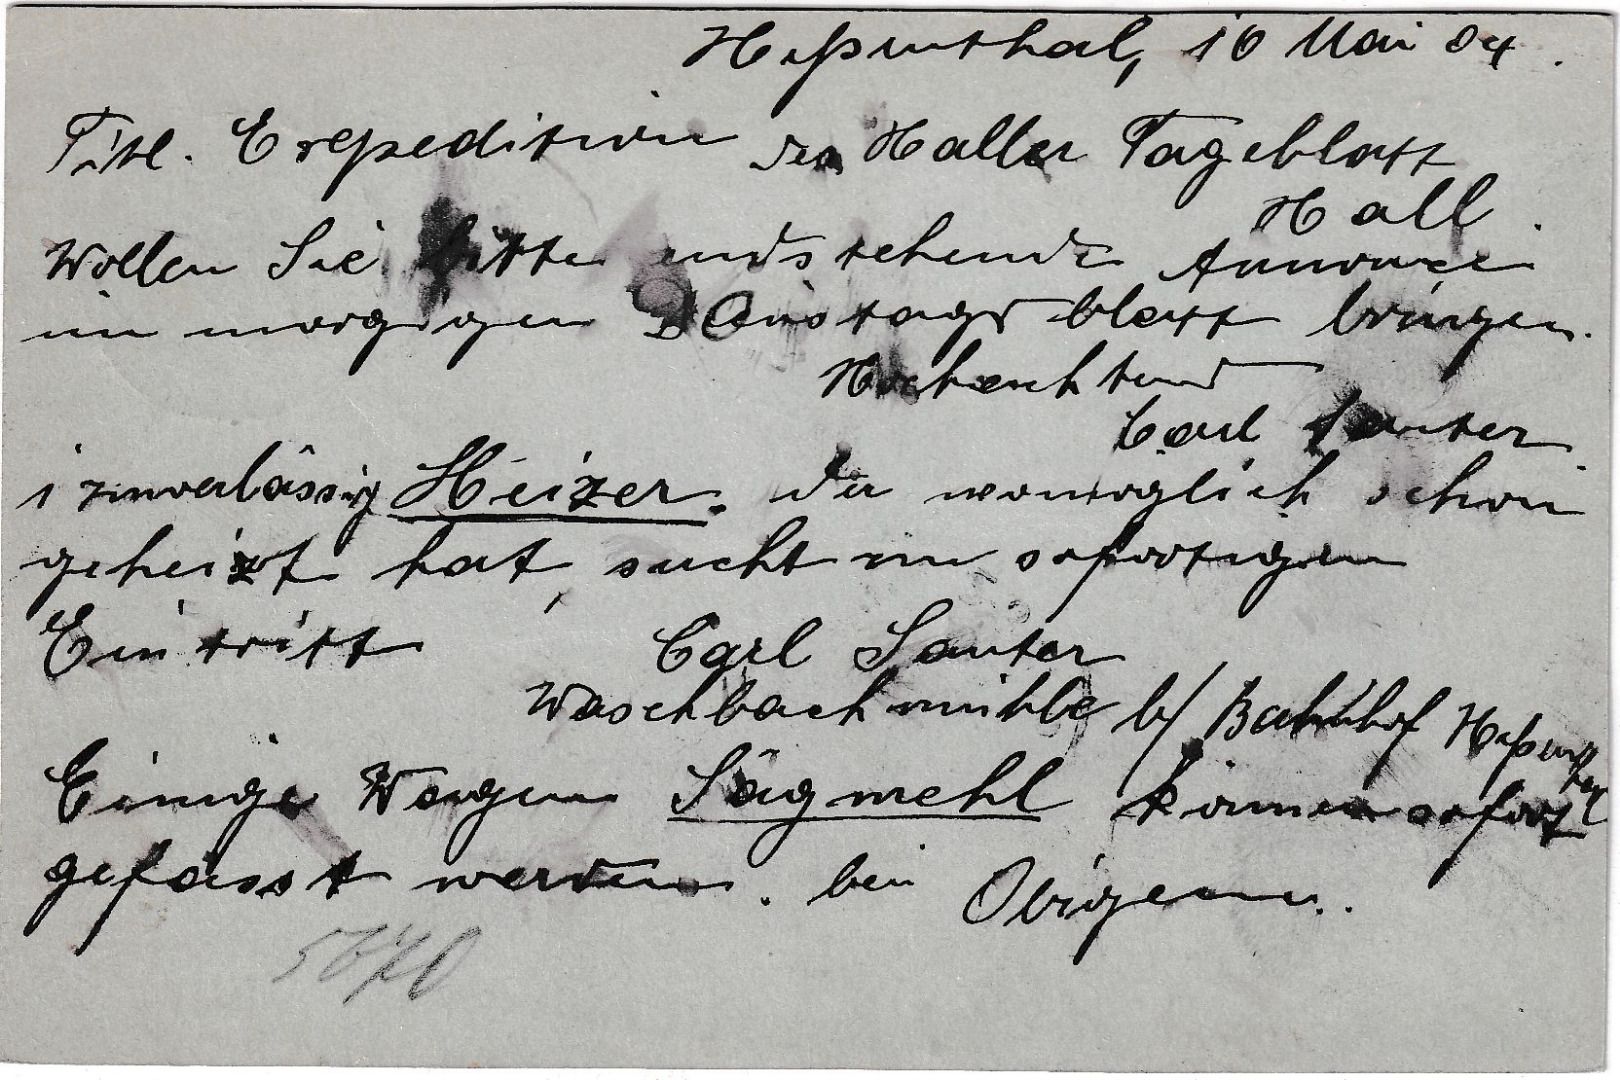 Heßenthal, 16 Mai 04.
Titl. Expedition des Haller Tageblatt
Hall.
Wollen Sie bitte endstehende Annonce
im morgigen Dienstagsblatt bringen.
Hochachtend
Carl Sauter
1 zuverlässig Heizer. der womöglich schon
geheizt hat, sucht zu sofortigem
Eintritt Carl Sauter
Waschbachmühle b/ Bahnhof Heßenthal
Einige Wagen Sägmehl können sofort
gefasst werden. bei Obigem.
5670